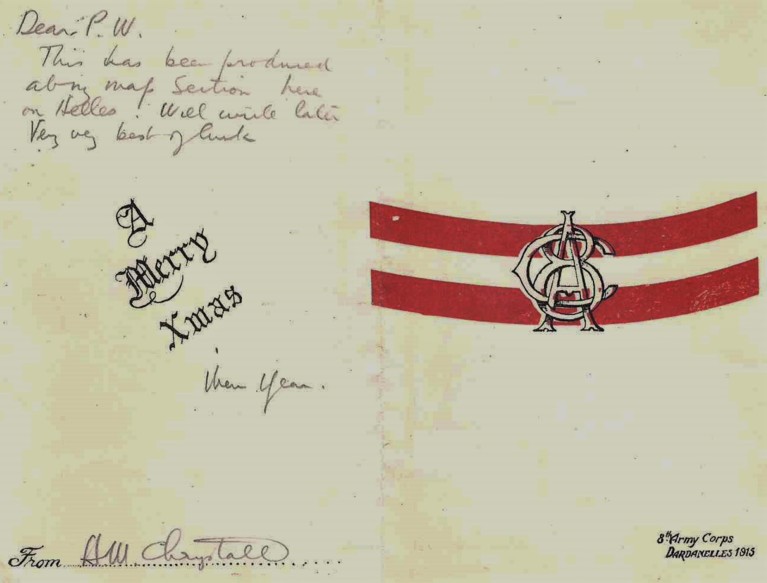 Dear P.W.
This has been produced
by map Section here
on Helles! Will write later
Very very best of luck
A
Merry
Xmas
Year.
From AW. Chrystall
8th Army Corps
DARDANELLES 1915